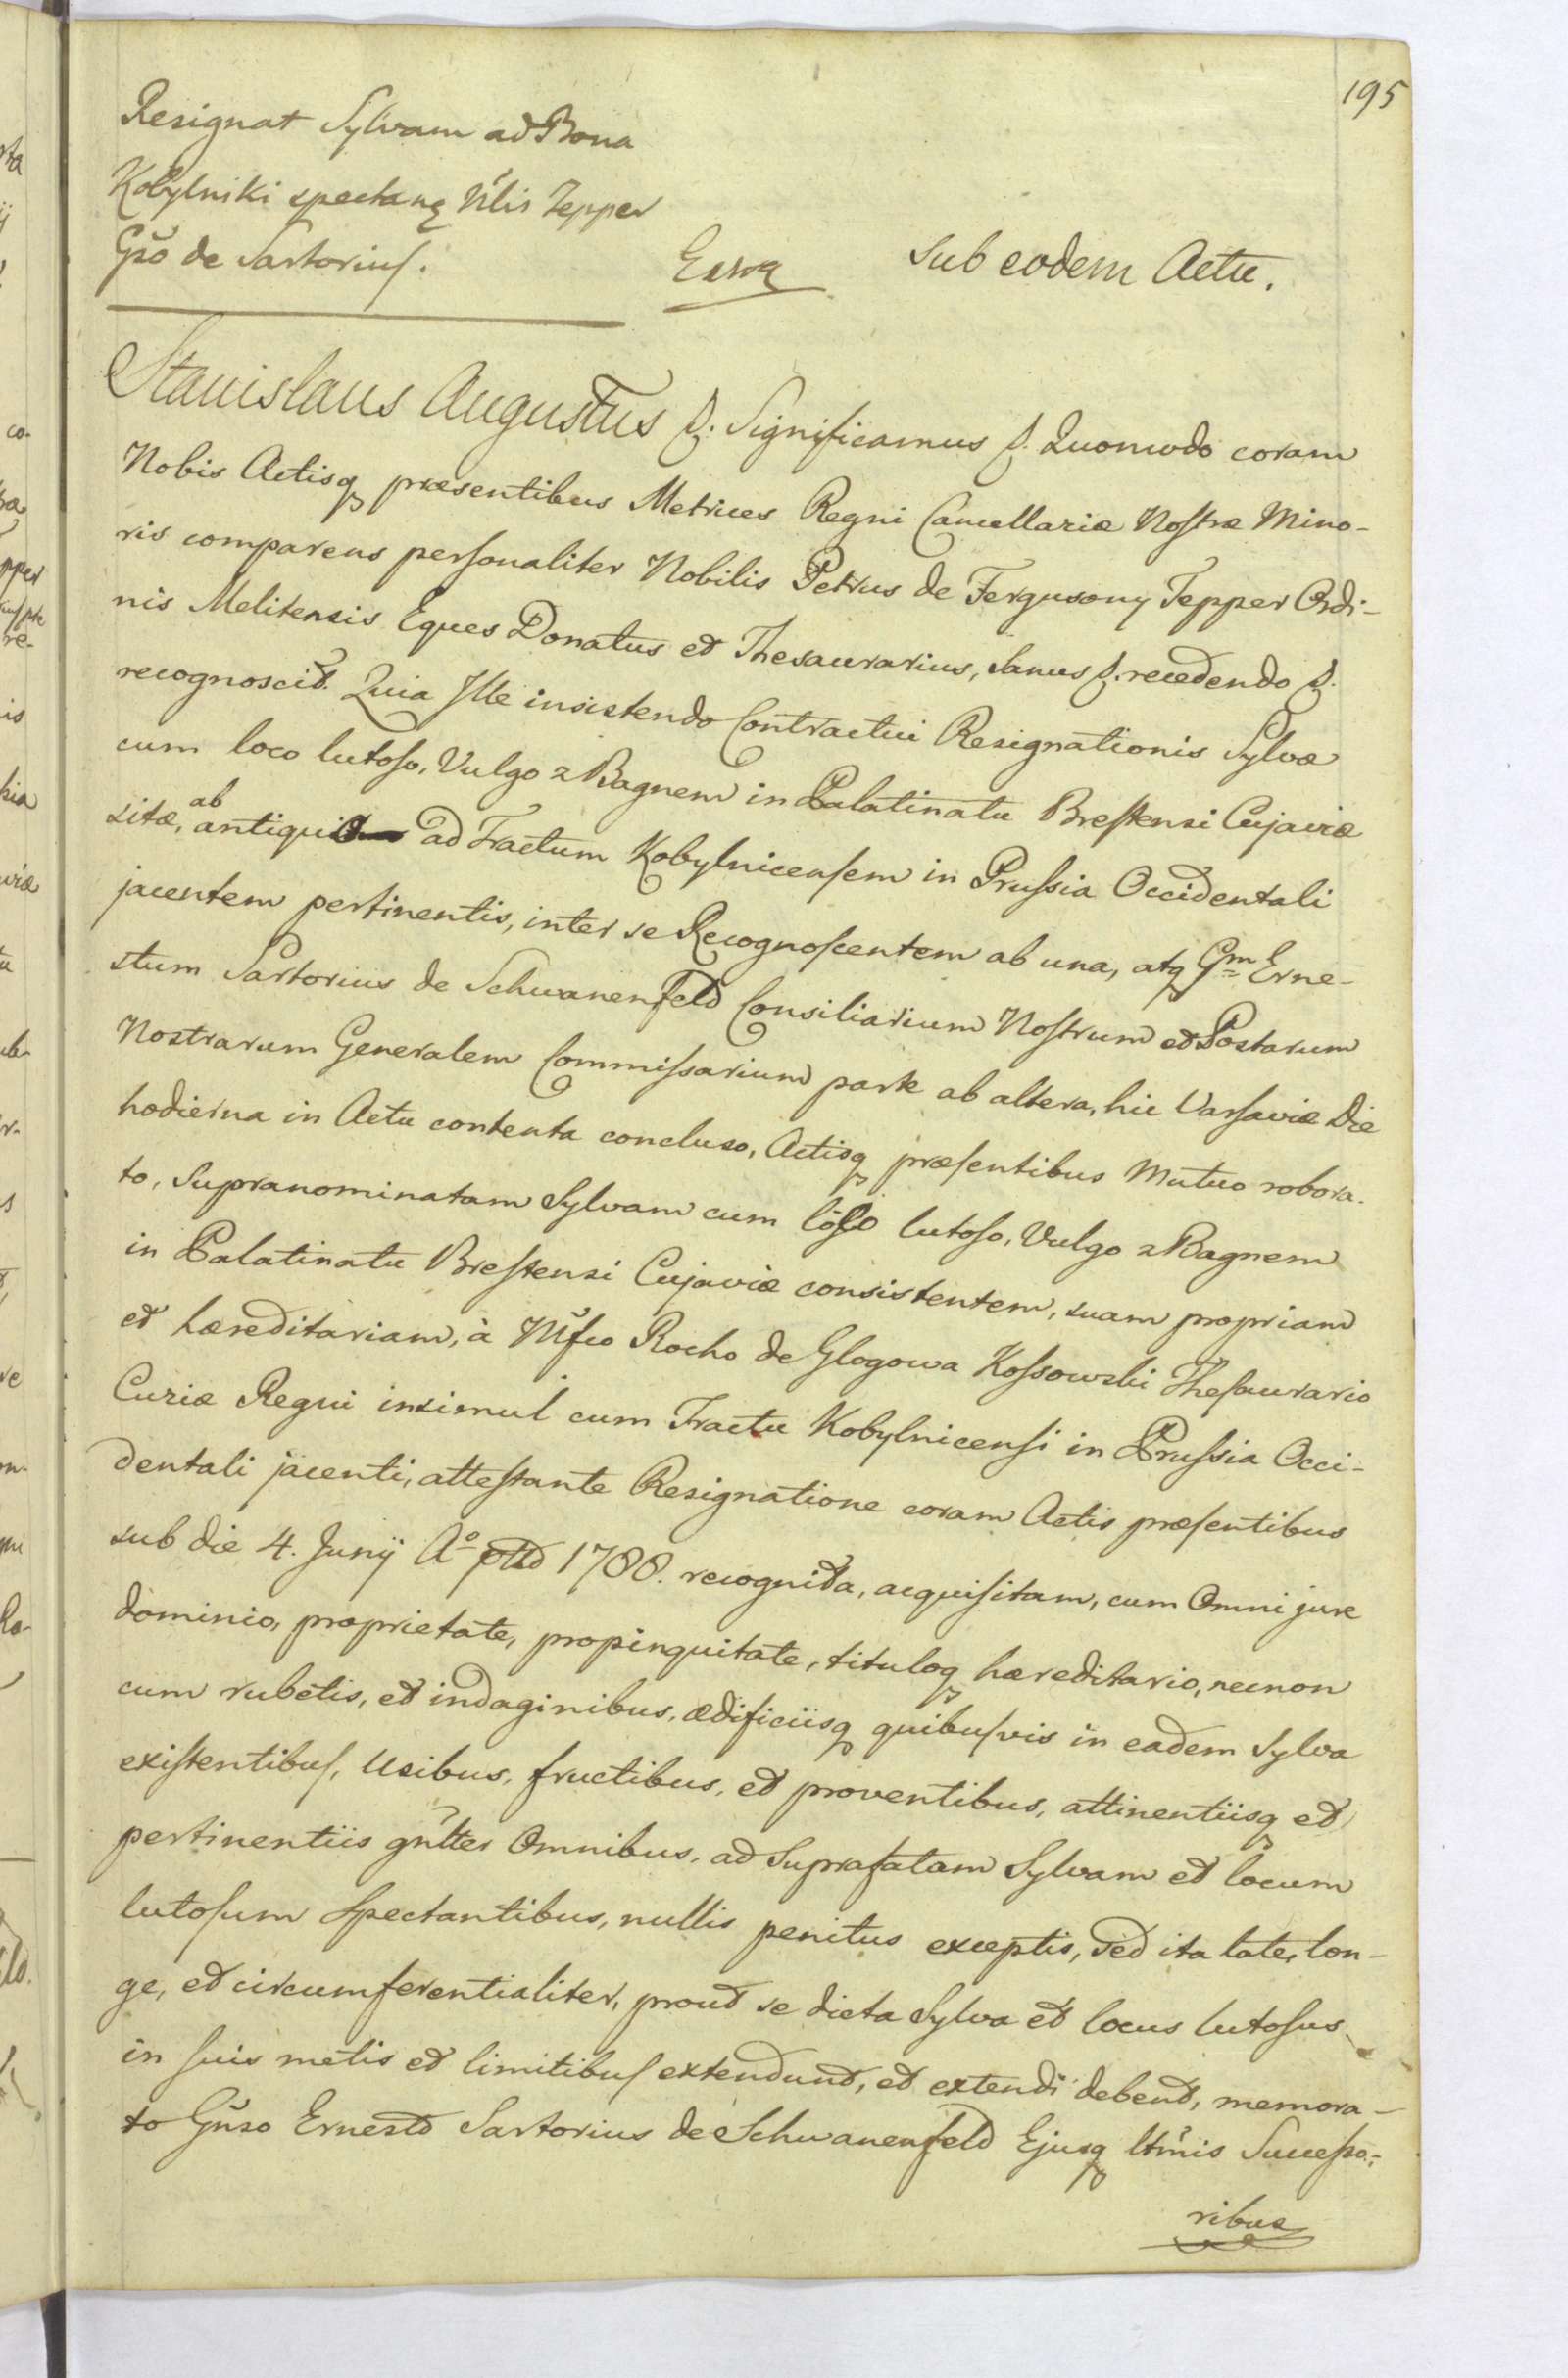 195
Resignat Sylvam ad Bona
Kobylniki spectanꝫ Nlis Tepper
Gso de Sartorius.
sub eodem Actu.
Stanislaus Augustus &. Significamus &. Quomodo coram
Nobis Actisqꝫ præsentibus Metrices Regni Cancellariæ Nostræ Mino-
ris comparens personaliter Nobilis Petrus de Fergusony Tepper Ordi-
nis Melitensis Eques Donatus et Thesaurarius, sanus &. recedendo &.
recognoscit. Quia Ille insistendo Contractui Resignationis Sylvæ
cum loco lutoso, Vulgo z Bagnem in Palatinatu Brestensi Cujaviæ
sitæ, ab antiquo ad Tractum Kobylnicensem in Prussia Occidentali
jacentem pertinentis, inter se Recognoscentem ab una, atqꝫ Gm Erne-
stum Sartorius de Schwanenfeld Consiliarium Nostrum et Postarum
Nostrarum Generalem Commissarium parte ab altera, hic Varsaviæ Die
hodierna in Actu contenta concluso, Actisqꝫ præsentibus Mutuo robora-
to, supranominatam Sylvam cum loco lutoso, Vulgo z Bagnem
in Palatinatu Brestensi Cujaviæ consistentem, suam propriam
et hæreditariam, à Mfco Rocho de Glogowa Kossowski Thesaurario
Curiæ Regni insimul cum Tractu Kobylnicensi in Prussia Occi-
dentali jacenti, attestante Resignatione coram Actis præsentibus
sub die 4. Junij Aº 1788. recognita, acquisitam, cum Omni jure
dominio, proprietate, propinquitate, tituloqꝫ hæreditario, necnon
cum rubetis, et indaginibus, ædificiisqꝫ quibusvis in eadem Sylva
existentibus, Usibus, fructibus, et proventibus, attinentiisqꝫ et
pertinentiis gnlter Omnibus, ad suprafatam Sylvam et locum
lutosum Spectantibus, nullis penitus exceptis, sed ita late, lon-
ge, et circumferentialiter, prout se dicta Sylva et locus lutosus
in suis metis et limitibus extendunt, et extendi debent, memora-
to Gnso Ernesto Sartorius de Schwanenfeld Ejusqꝫ ltmis Successo-
ribus